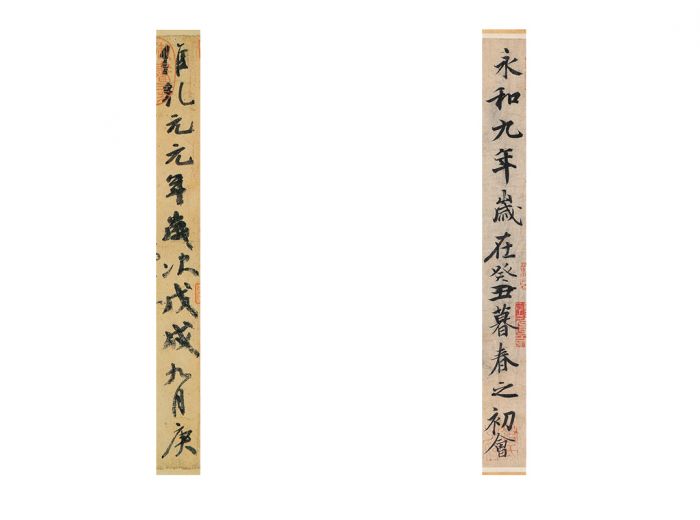 永和九年歲在癸丑暮春之初會
維乾元元年歲次戊戌九月庚